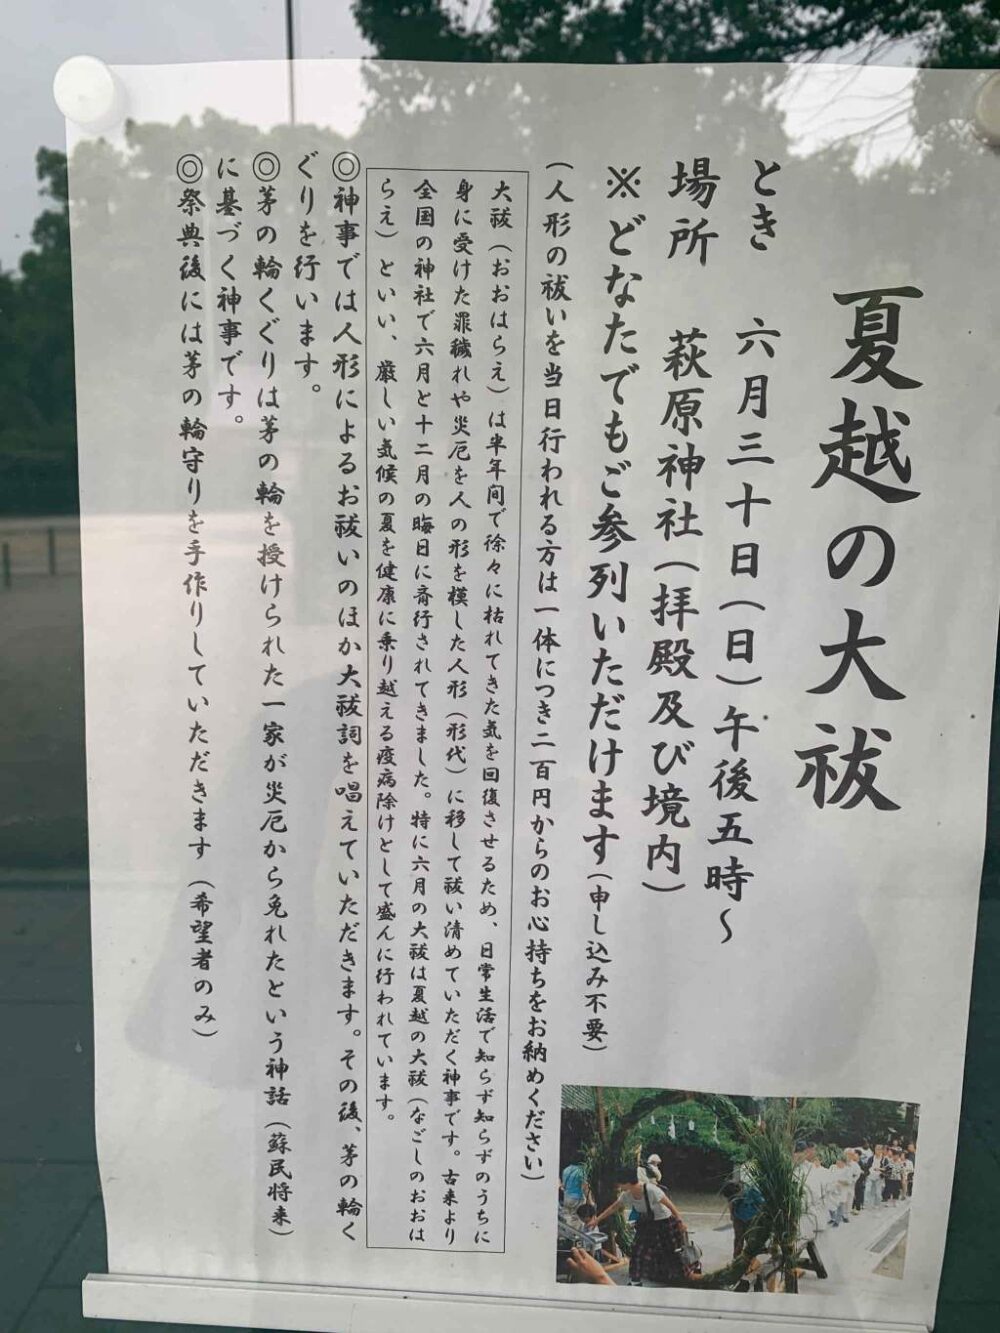 夏越の大祓
とき　六月三十日（日）午後五時～
場所　萩原神社（拝殿及び境内）
※どなたでもご参列いただけます（申し込み不要）
（人形の祓いを当日行われる方は一体につき二百円からのお心持ちをお納めください）
大祓（おおはらえ）は半年間で徐々に枯れてきた気を回復させるため、日常生活で知らず知らずのうちに
身に受けた罪穢れや災厄を人の形を模した人形（形代）に移して祓い清めていただく神事です。古来より
全国の神社で六月と十二月の晦日に斎行されてきました。特に六月の大祓は夏越の大祓（なごしのおおは
らえ）といい、厳しい気候の夏を健康に乗り越える疫病除けとして盛んに行われています。
◎神事では人形によるお祓いのほか大祓詞を唱えていただきます。その後、茅の輪く
ぐりを行います。
◎茅の輪くぐりは茅の輪を授けられた一家が災厄から免れたという神話（蘇民将来）
に基づく神事です。
◎祭典後には茅の輪守りを手作りしていただきます（希望者のみ）